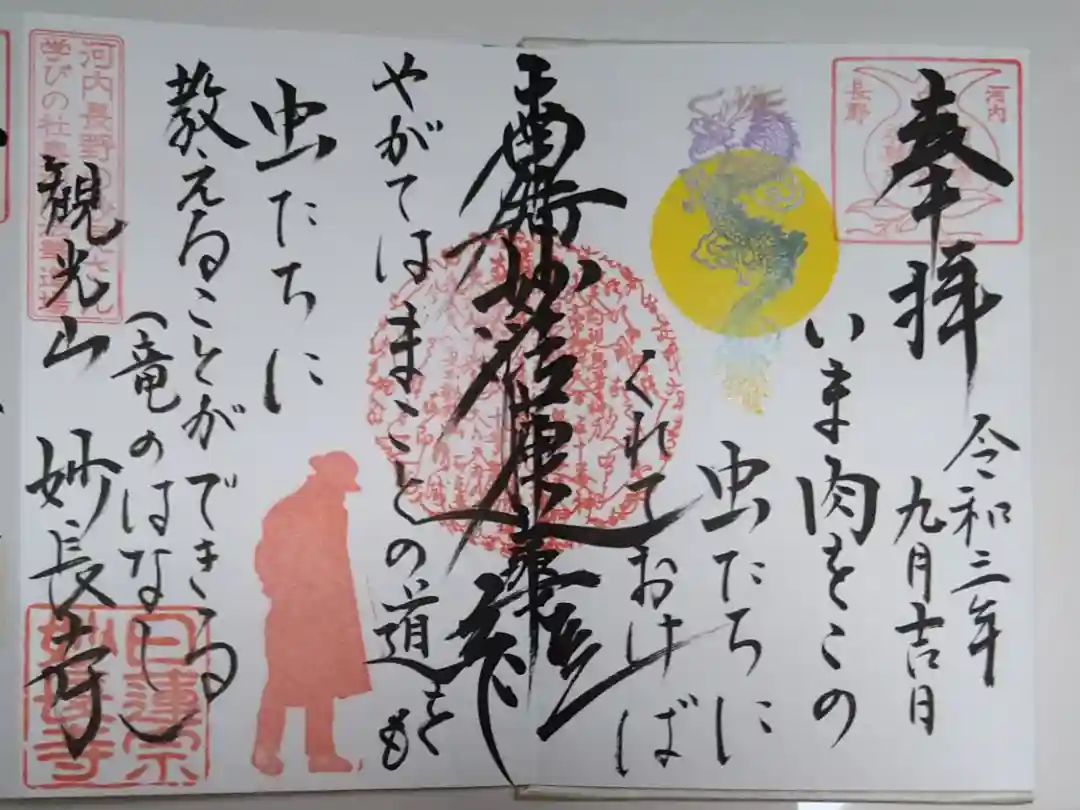 河内
長野
奉拝
令和三年
九月吉日
いま肉をこの
虫たちに
くれておけば
南無妙法蓮華経
やがてはまことの道をも
虫たちに
教えることができる
(竜のはなし)
河内長野の
学びの社
観光山 妙長寺
日蓮宗
妙長寺